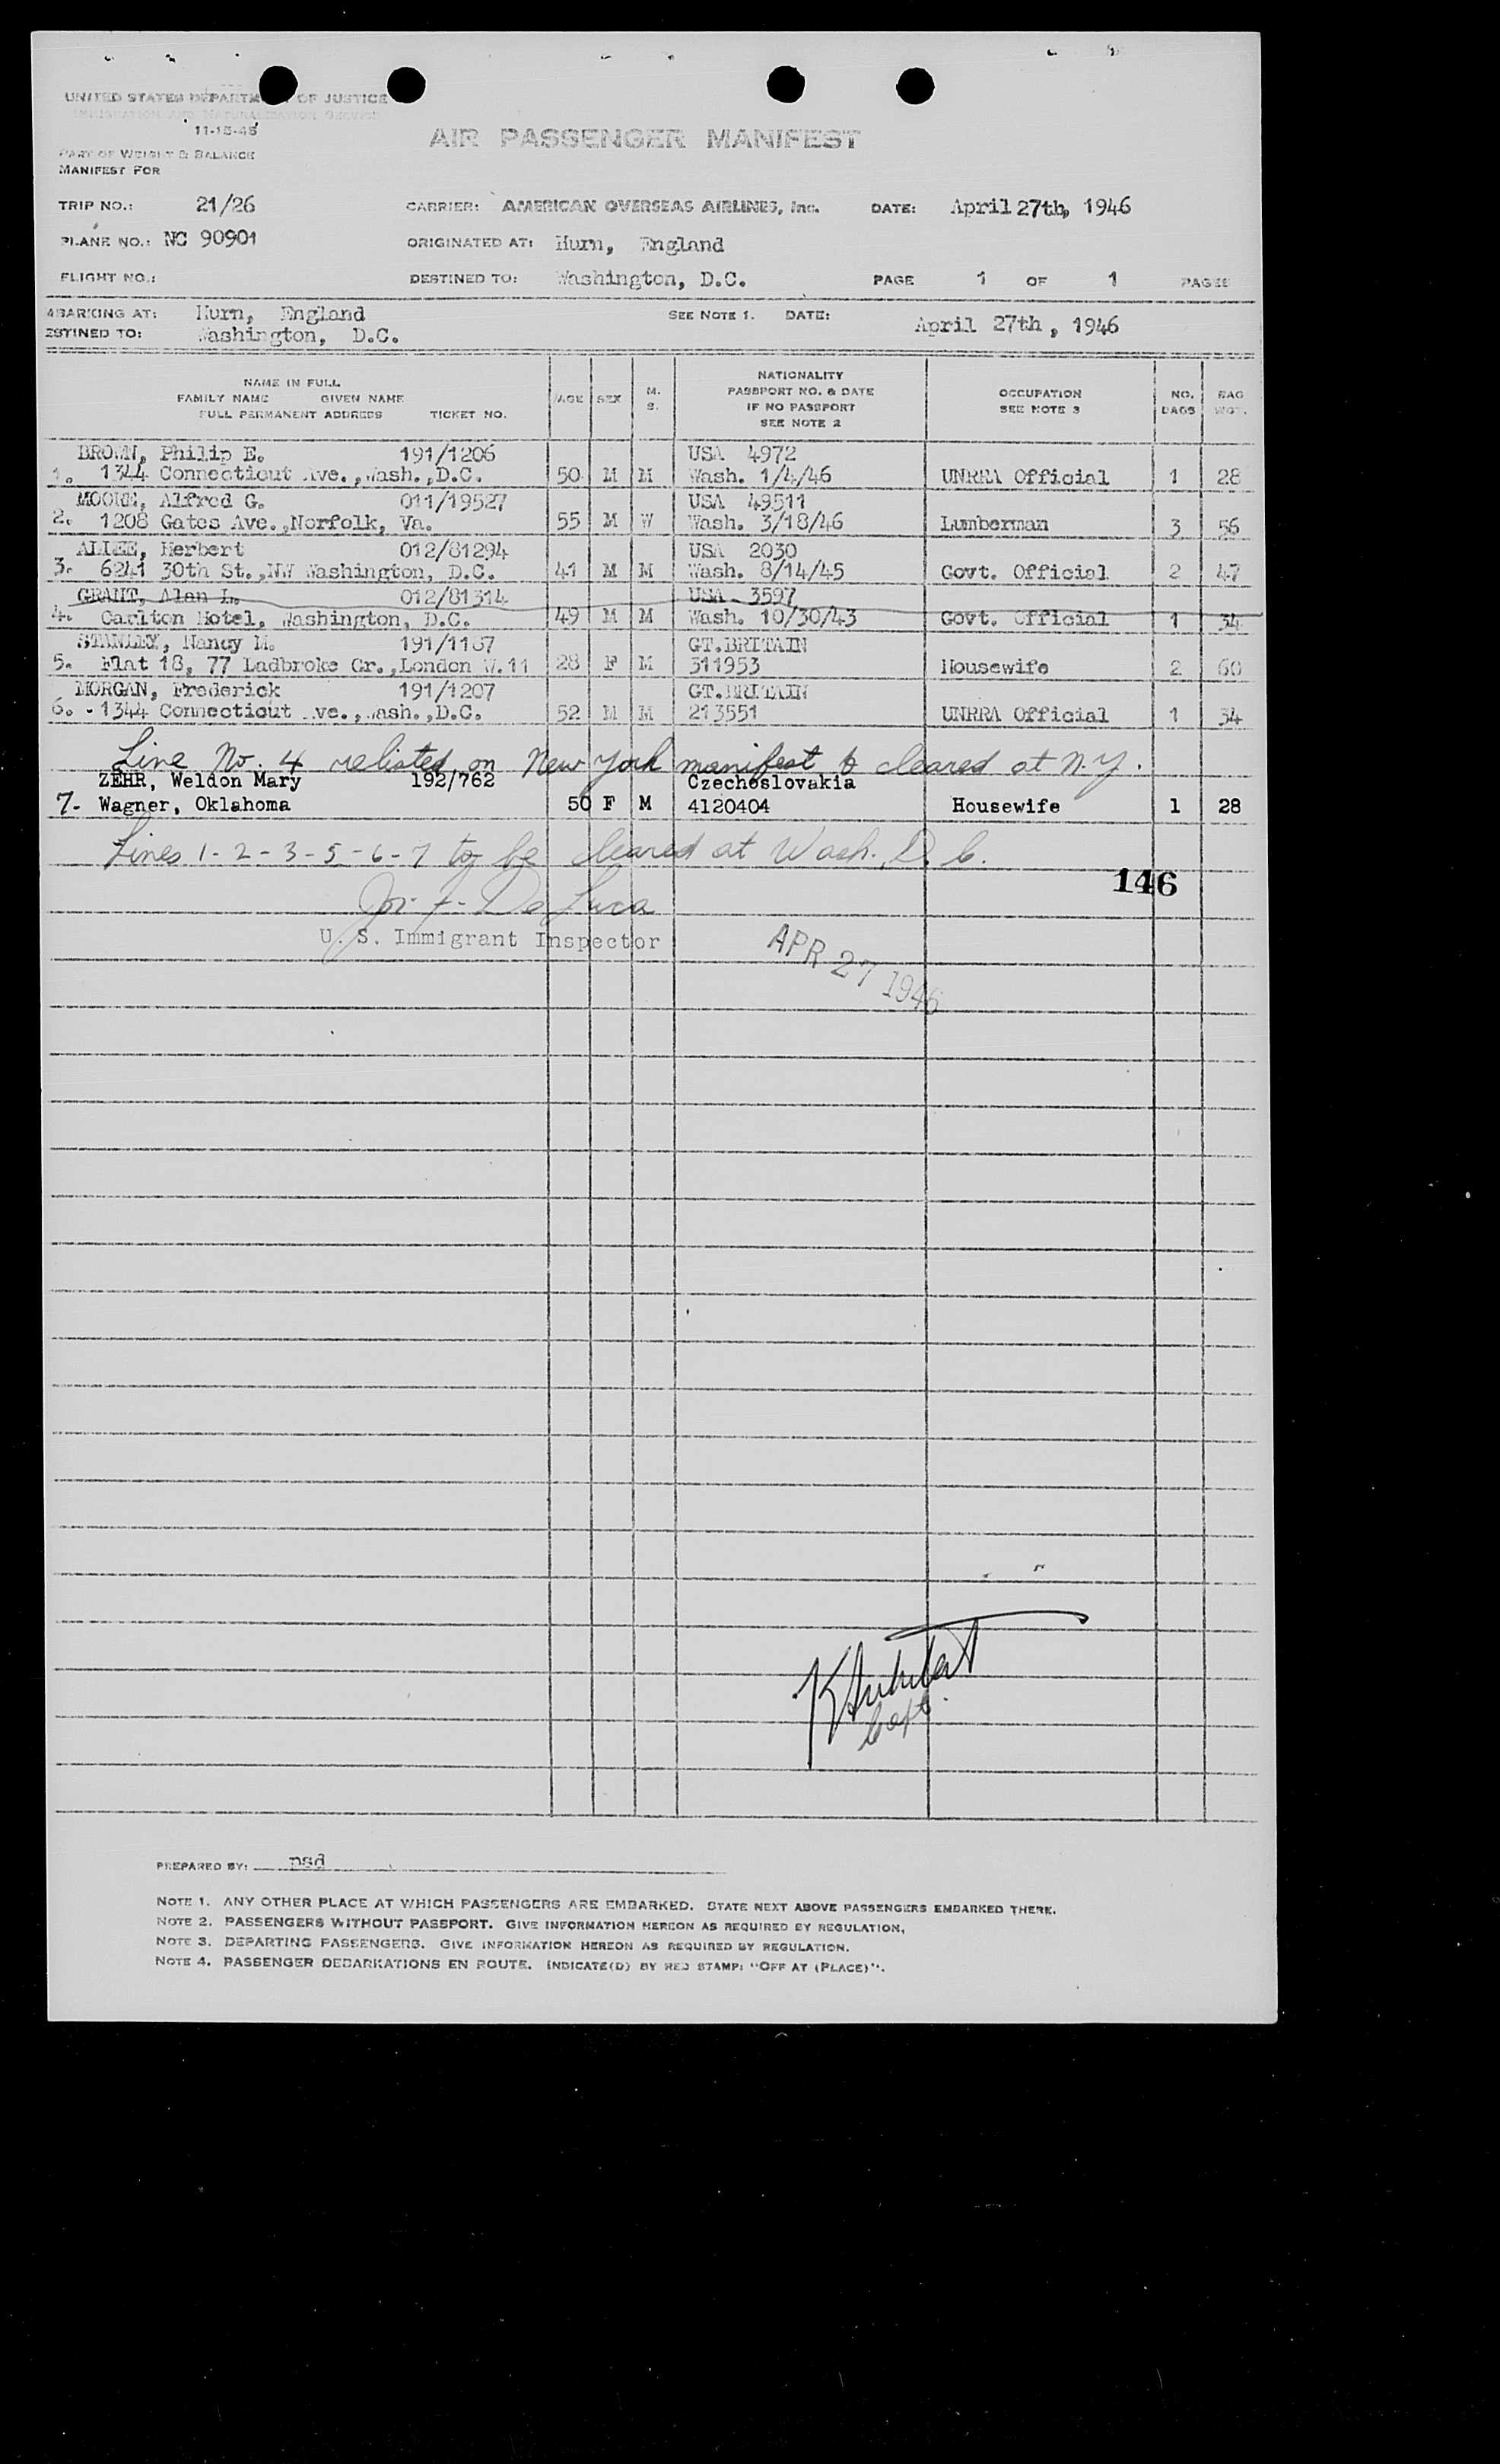 UNITED STATES DEPARTMENT OF JUSTICE
IMMIGRATION AND NATURALIZATION SERVICE
11-15-45
AIR PASSENGER MANIFEST
PART OF WEIGHT & BALANCE
MANIFEST FOR
TRIP NO.: 21/26 CARRIER: AMERICAN OVERSEAS AIRLINES, Inc. DATE: April 27th, 1946
PLANE NO.: NC 90901 ORIGINATED AT: Hurn, England
FLIGHT NO.: DESTINED TO: Washington, D.C. PAGE 1 OF 1 PAGES
MBARKING AT: Hurn, England SEE NOTE 1. DATE: April 27th, 1946
ESTINED TO: Washington, D.C.
NAME IN FULL
FAMILY NAME GIVEN NAME
FULL PERMANENT ADDRESS TICKET NO.
AGE SEX M. S.
NATIONALITY
PASSPORT NO. & DATE
IF NO PASSPORT
SEE NOTE 2
OCCUPATION
SEE NOTE 3
NO. BAGS
BAG WGT.
BROWN, Philip E. 191/1206 USA 4972
1. 1344 Connecticut Ave., Wash., D.C. 50 M M Wash. 1/4/46 UNRRA Official 1 28
MOORE, Alfred G. 011/19527 USA 49511
2. 1208 Gates Ave., Norfolk, Va. 55 M W Wash. 3/18/46 Lumberman 3 56
ALLEE, Herbert 012/81294 USA 2030
3. 6241 30th St., NW Washington, D.C. 41 M M Wash. 8/14/45 Govt. Official 2 47
GRANT, Alan L. 012/81314 USA 3597
4. Carlton Hotel, Washington, D.C. 49 M M Wash. 10/30/43 Govt. Official 1 34
STANLEY, Nancy M. 191/1187 GT.BRITAIN
5. Flat 18, 77 Ladbroke Gr., London W.11 28 F M 311953 Housewife 2 60
MORGAN, Frederick 191/1207 GT.BRITAIN
6. - 1344 Connecticut Ave., Wash., D.C. 52 M M 213551 UNRRA Official 1 34
Line No. 4 relisted on New York manifest & cleared at N.Y.
ZEHR, Weldon Mary 192/762 Czechoslovakia
7- Wagner, Oklahoma 50 F M 4120404 Housewife 1 28
Lines 1-2-3-5-6-7 to be cleared at Wash., D.C.
146
Jos. F. De Luca
U. S. Immigrant Inspector
APR 27 1946
Capt.
PREPARED BY:
NOTE 1. ANY OTHER PLACE AT WHICH PASSENGERS ARE EMBARKED. STATE NEXT ABOVE PASSENGERS EMBARKED THERE.
NOTE 2. PASSENGERS WITHOUT PASSPORT. GIVE INFORMATION HEREON AS REQUIRED BY REGULATION,
NOTE 3. DEPARTING PASSENGERS. GIVE INFORMATION HEREON AS REQUIRED BY REGULATION.
NOTE 4. PASSENGER DEBARKATIONS EN ROUTE. INDICATE(D) BY RED STAMP: "OFF AT (PLACE)".